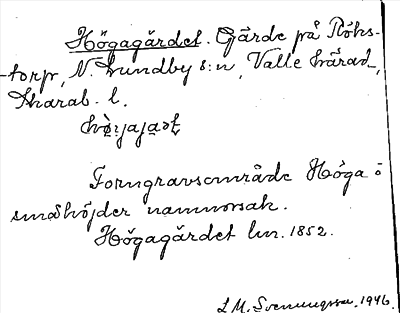 Högagärdet. Gärde på Röks-
torp, N. Lundby s:n, Valle härad,
Skarab. l.
Forngravsområde Höga ö
småhöjder namnorsak.
Högagärdet lm. 1852.
L M. Svenungsson. 1946.